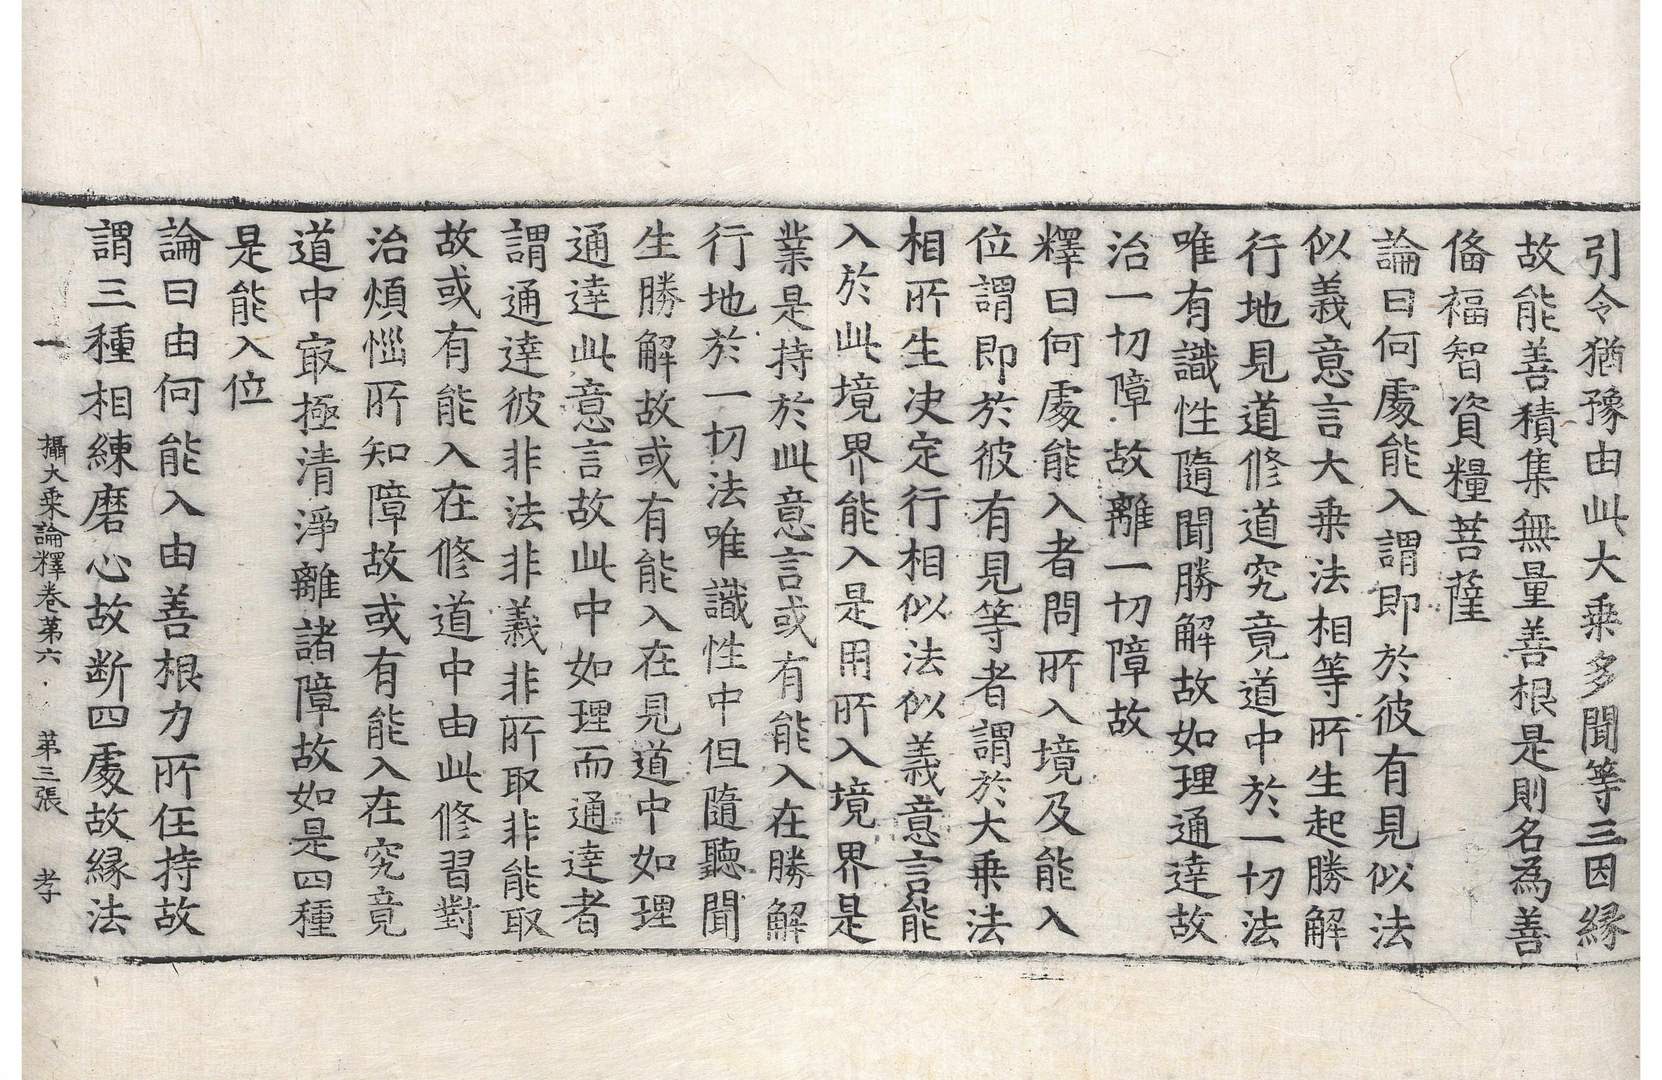 引令猶豫由此大乘多聞等三因緣
故能善積集無量善根是則名為善
俻福智資糧菩薩
論曰何處能入謂即於彼有見似法
似義意言大乘法相等所生起勝解
行地見道修道究竟道中於一切法
唯有識性隨聞勝解故如理通達故
治一切障故離一切障故
釋曰何處能入者問所入境及能入
位謂即於彼有見等者謂於大乘法
相所生决定行相似法似義意言能
入於此境界能入是用所入境界是
業是持於此意言或有能入在勝解
行地於一切法唯識性中但隨聽聞
生勝解故或有能入在見道中如理
通達此意言故此中如理而通達者
謂通達彼非法非義非所取非能取
故或有能入在修道中由此修習對
治煩惱所知障故或有能入在究竟
道中㝡極清淨離諸障故如是四種
是能入位
論曰由何能入由善根力所任持故
謂三種相練磨心故断四處故緣法
一 攝大乘論釋卷第六 第三張 孝